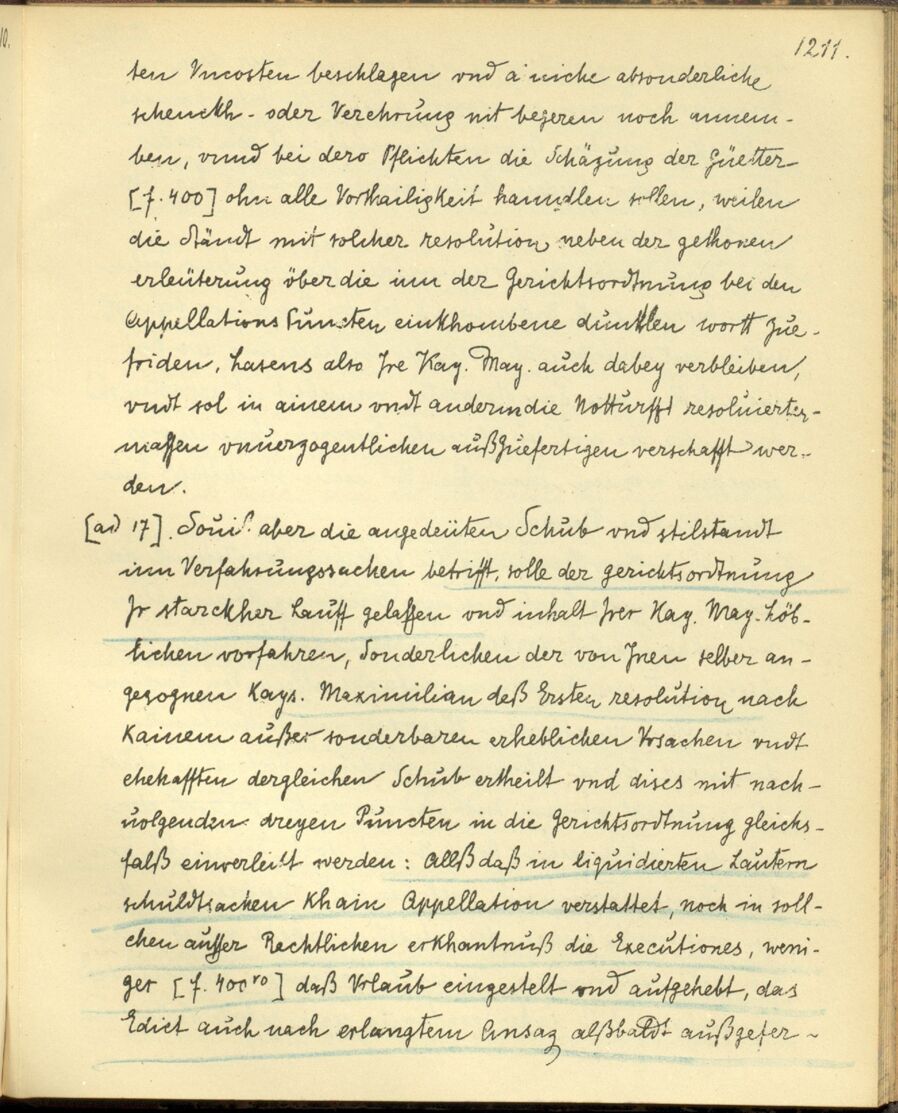 10.
1211.
ten Vncosten beschlagen vnd ainiche absonderliche
schenckh- oder Verehrung nit begeren noch annem-
ben, vnnd bei dero Pflichten die Schäzung der Güetter
[f. 400] ohne alle Vorthailigkeit hanndlen sollen, weilen
die Ständt mit solcher resolution neben der gethonen
erleüterung über die inn der Gerichtsordtnung bei den
Appellations Puncten einkhombene dunklen wortt zue-
friden, Lasens also Jre Kay. May. auch dabey verbleiben,
vndt sol in ainem vndt anderm die Notturfft resoluierter-
massen vnuerzogentlichen außzuefertigen verschafft wer-
den.
[ad 17]. Souil aber die angedeüten Schub vnd stilstandt
inn Verfahrungssachen betrifft, solle der gerichtsordtnung
Jr starckher Lauff gelassen vnd inhalt Jrer Kay. May. Löb-
lichen vorfahren, Sonderlichen der von Jnen selber an-
gezognen Kays. Maximilian deß Ersten resolution nach
Kainem außer sonderbaren erheblichen Vrsachen vndt
ehehafften dergleichen Schub ertheilt vnd dises mit nach-
uolgenden dreyen Puncten in die Gerichtsordtnung gleichs-
falß einverleibt werden: Allß daß in liquidierten Lautern
schuldtsachen Khain Appellation verstattet, noch in soll-
chen ausser Rechtlichen erkhantnuß die Executiones, weni-
ger [f. 400 vo] daß Vrlaub eingestelt vnd aufgehebt, das
Edict auch nach erlangtem Ansaz alßbaldt außgefer-